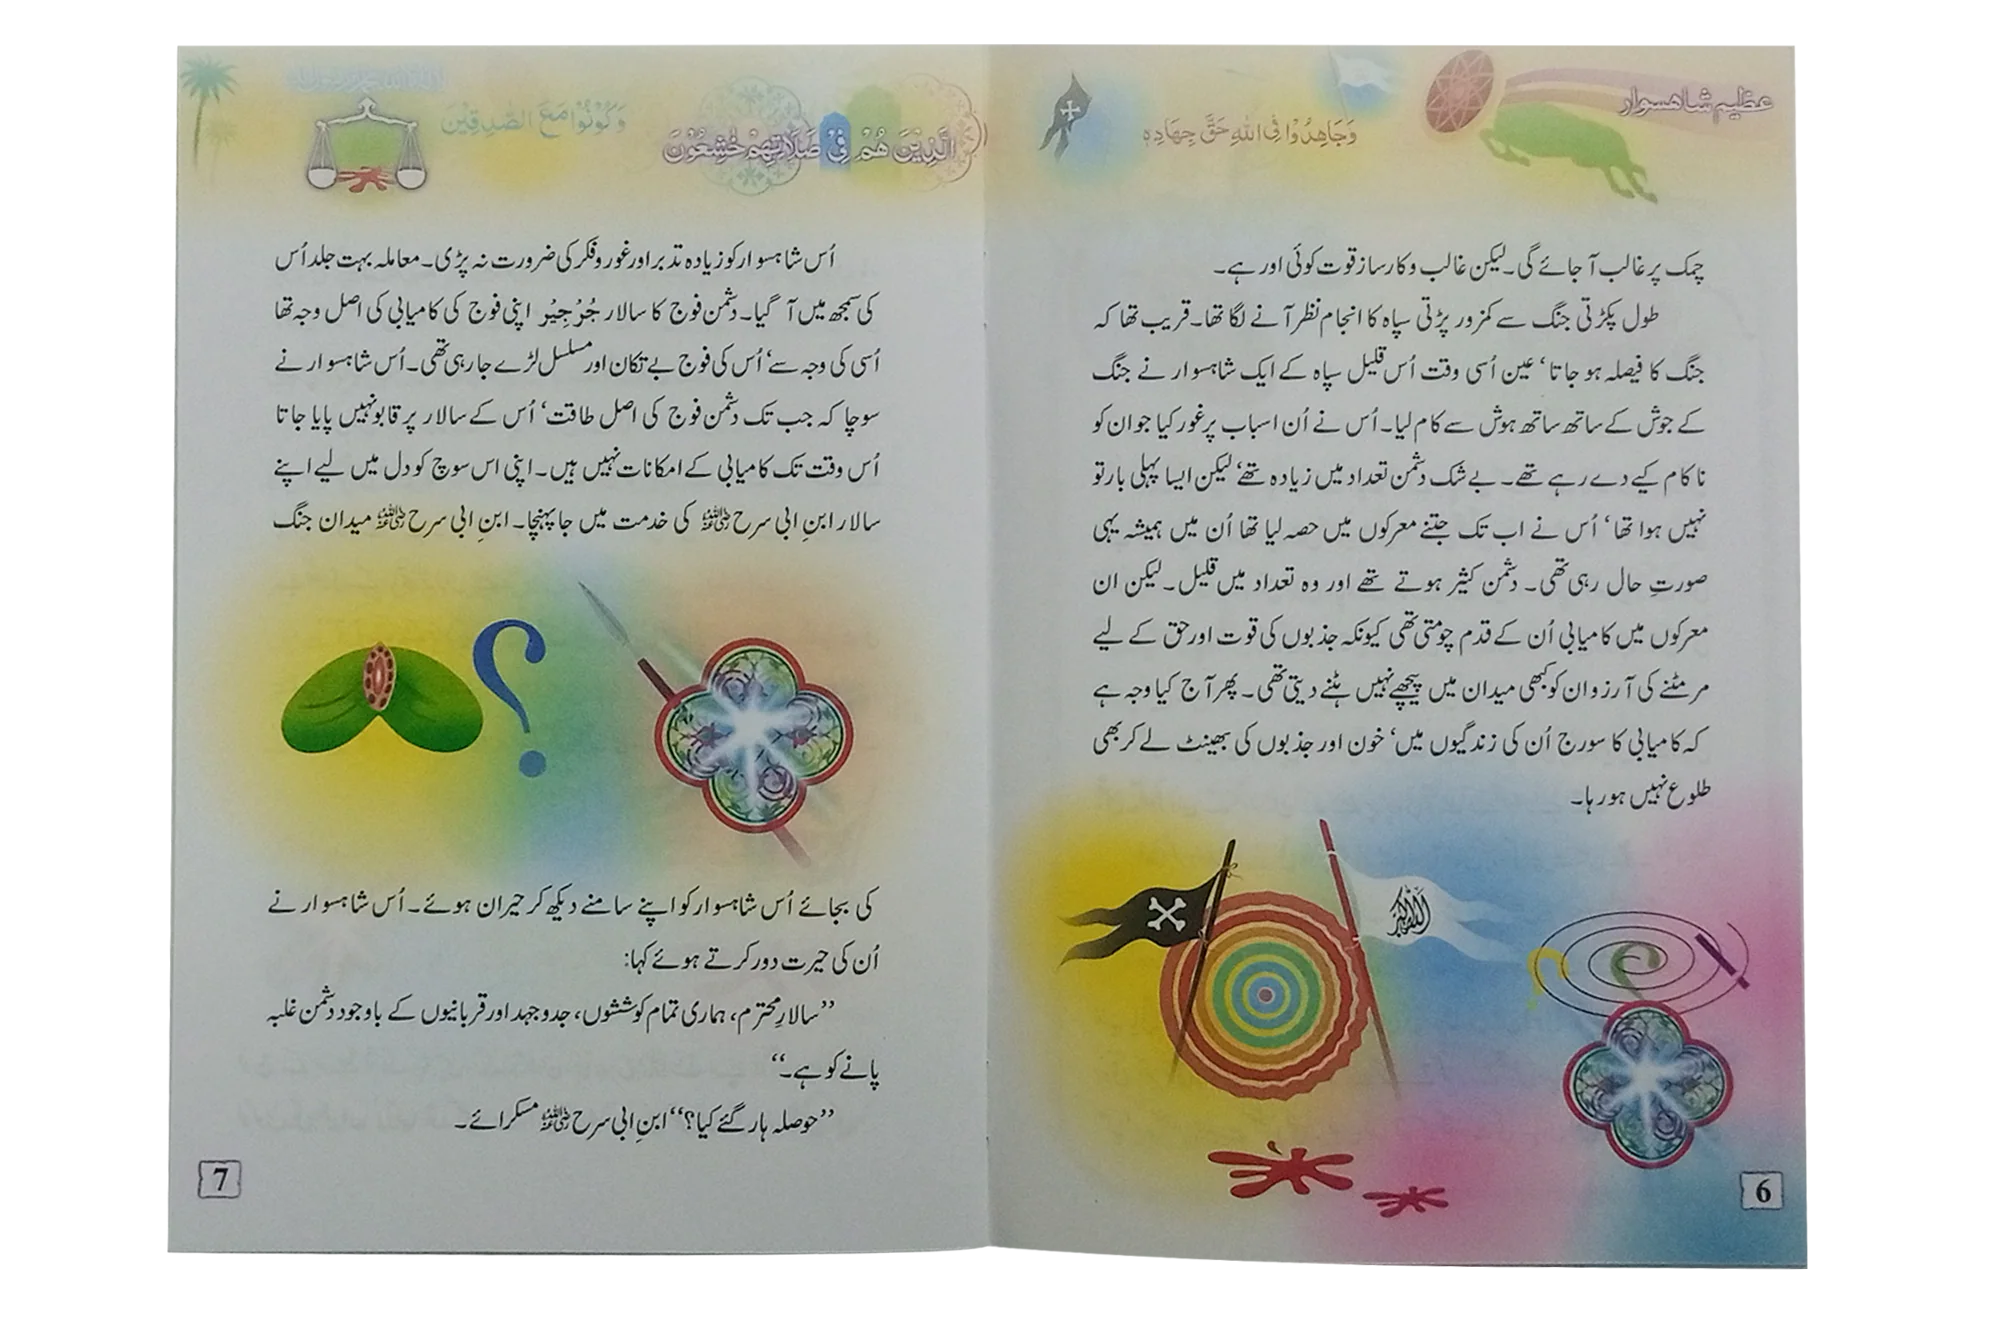 عظیم شاہسوار
وَجَاهِدُوْا فِی اللّٰهِ حَقَّ جِهَادِهٖ
چمک پر غالب آ جائے گی۔ لیکن غالب و کارساز قوت کوئی اور ہے۔
طول پکڑتی جنگ سے کمزور پڑتی سپاہ کا انجام نظر آنے لگا تھا۔ قریب تھا کہ
جنگ کا فیصلہ ہو جاتا، عین اُسی وقت اُس قلیل سپاہ کے ایک شاہسوار نے جنگ
کے جوش کے ساتھ ساتھ ہوش سے کام لیا۔ اُس نے اُن اسباب پر غور کیا جو ان کو
ناکام کیے دے رہے تھے۔ بے شک دشمن تعداد میں زیادہ تھے، لیکن ایسا پہلی بار تو
نہیں ہوا تھا، اُس نے اب تک جتنے معرکوں میں حصہ لیا تھا اُن میں ہمیشہ یہی
صورتِ حال رہی تھی۔ دشمن کثیر ہوتے تھے اور وہ تعداد میں قلیل۔ لیکن ان
معرکوں میں کامیابی اُن کے قدم چومتی تھی کیونکہ جذبوں کی قوت اور حق کے لیے
مر مٹنے کی آرزو ان کو کبھی میدان میں پیچھے نہیں ہٹنے دیتی تھی۔ پھر آج کیا وجہ ہے
کہ کامیابی کا سورج اُن کی زندگیوں میں، خون اور جذبوں کی بھینٹ لے کر بھی
طلوع نہیں ہو رہا۔
اللہ اکبر
6
الَّذِیْنَ هُمْ فِیْ صَلَاتِهِمْ خٰشِعُوْنَ
وَکُوْنُوْا مَعَ الصّٰدِقِیْنَ
اُس شاہسوار کو زیادہ تدبر اور غور و فکر کی ضرورت نہ پڑی۔ معاملہ بہت جلد اُس
کی سمجھ میں آ گیا۔ دشمن فوج کا سالار جُرْجِیْر اپنی فوج کی کامیابی کی اصل وجہ تھا
اُسی کی وجہ سے، اُس کی فوج بے تکان اور مسلسل لڑے جا رہی تھی۔ اُس شاہسوار نے
سوچا کہ جب تک دشمن فوج کی اصل طاقت، اُس کے سالار پر قابو نہیں پایا جاتا
اُس وقت تک کامیابی کے امکانات نہیں ہیں۔ اپنی اس سوچ کو دل میں لیے اپنے
سالار ابنِ ابی سرح رضی اللہ عنہ کی خدمت میں جا پہنچا۔ ابنِ ابی سرح رضی اللہ عنہ میدان جنگ
؟
کی بجائے اُس شاہسوار کو اپنے سامنے دیکھ کر حیران ہوئے۔ اُس شاہسوار نے
اُن کی حیرت دور کرتے ہوئے کہا:
’’سالارِ محترم، ہماری تمام کوششوں، جدوجہد اور قربانیوں کے باوجود دشمن غلبہ
پانے کو ہے۔‘‘
’’حوصلہ ہار گئے کیا؟‘‘ ابنِ ابی سرح رضی اللہ عنہ مسکرائے۔
7